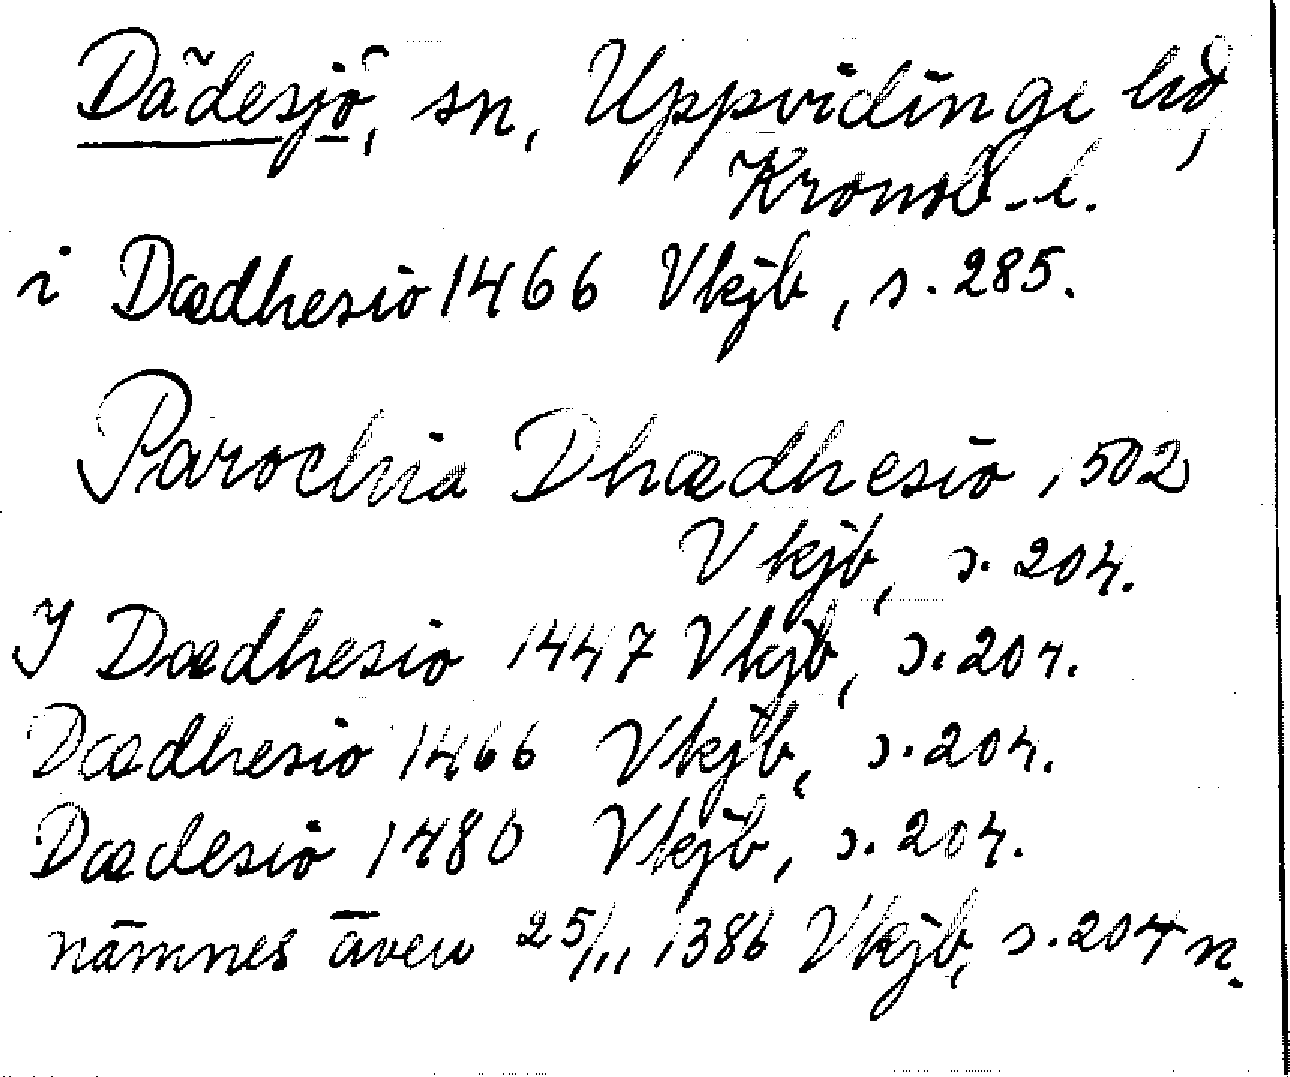 Dädesjö, sn, Uppvidinge hd,
Kronob. l.
i Dædhesio 1466 Vkjb, s. 285.
Parochia Dhædhesio 1502
Vkjb, s. 204.
I Dædhesio 1447 Vkjb, s. 204.
Dædhesio 1466 Vkjb, s. 204.
Dædesio 1480 Vkjb, s. 204.
nämnes även 25/11 1386 Vkjb, s. 204 n.